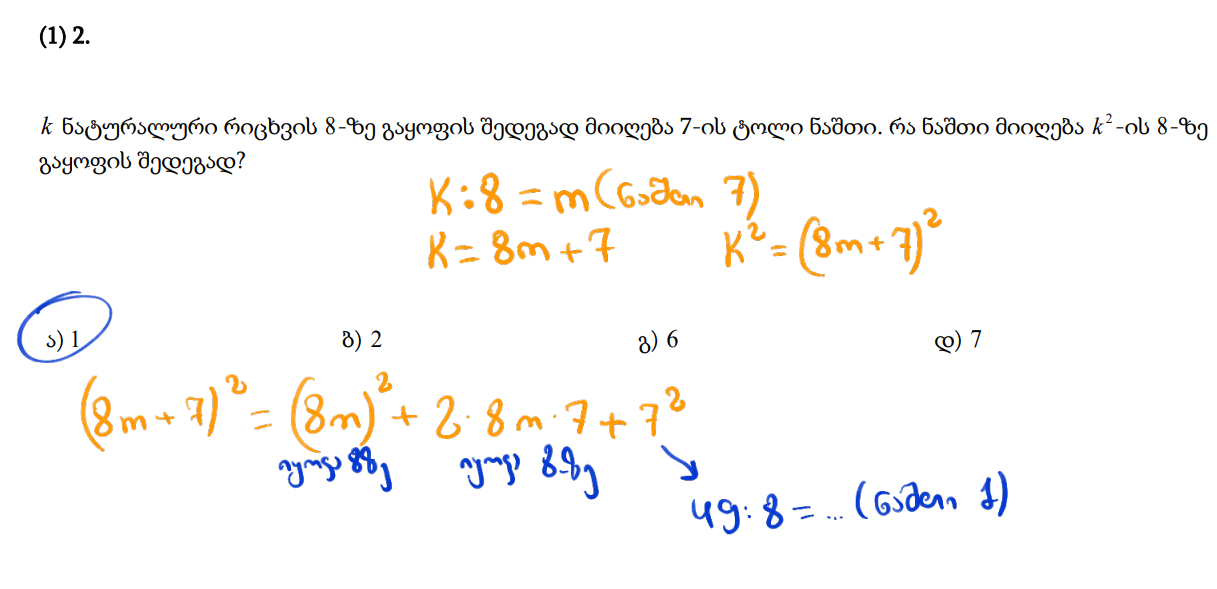 (1) 2.
k ნატურალური რიცხვის 8-ზე გაყოფის შედეგად მიიღება 7-ის ტოლი ნაშთი. რა ნაშთი მიიღება k²-ის 8-ზე
გაყოფის შედეგად?
K:8 = m (ნაშთი 7)
K = 8m + 7 K² = (8m + 7)²
ა) 1 ბ) 2 გ) 6 დ) 7
(8m + 7)² = (8m)² + 2·8m·7 + 7²
იყოფა 8ზე იყოფა 8-ზე
49:8 = ... (ნაშთი 1)